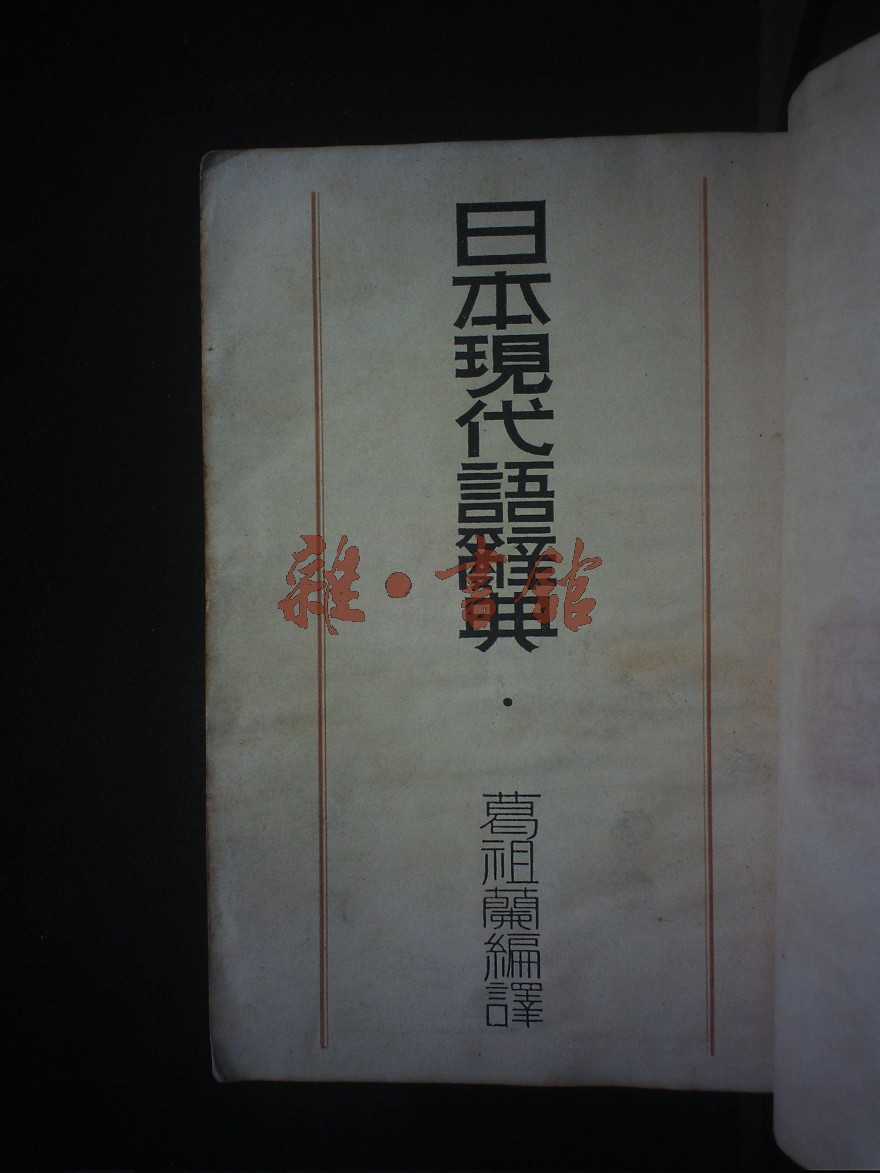 日本現代語辭典
·
葛祖蘭編譯
雜·書館